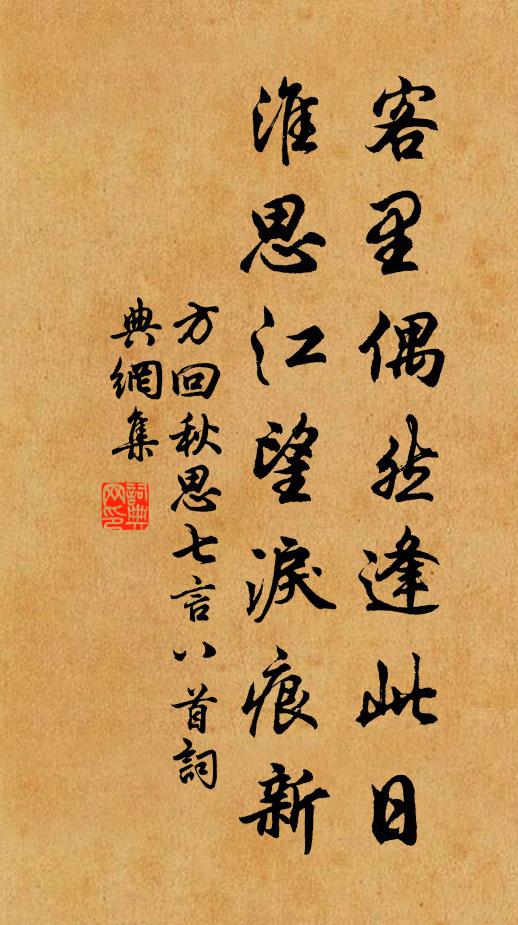 客里偶然逢此日
淮思江望淚痕新
方回秋思七言八首詞
典網集
詞典
网印